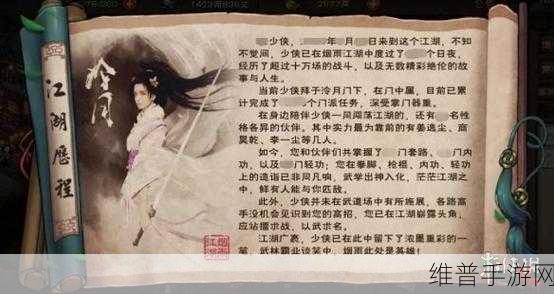 江湖歷程
泠月
少侠,
年
月
日来到这个江湖，不知
不觉间，少侠已在烟雨江湖中度过了
个日夜，
经历了超过十万场的战斗，以及无数精彩绝伦的故
事与人生。
当前少侠拜于泠月门下，在门中属，目前已累
计完成了
个门派任务，深受掌门器重。
在身边陪伴少侠一同闯荡江湖的，还有
名性
格各异的伙伴。其中实力最为靠前的有姜逃尘、商
昊乾、李一尘等几人。
如今，您和伙伴们共掌握了
门套路、
门内
功，以及
门轻功；您在拳脚、枪棍、内功、轻功
上的造诣已非同凡响，武学出神入化，茫茫江湖之
中，鲜有人能与你匹敌。
此外，少侠并未在武道场中有所施展，各路高
手没机会见识到您的高招，您已在江湖崭露头角，
应站擂求战，以武求名。
江湖广袤，少侠已在此中留下了浓墨重彩的一
笔，武林霸业谈笑中，烟雨此处是英雄！
维普手游网